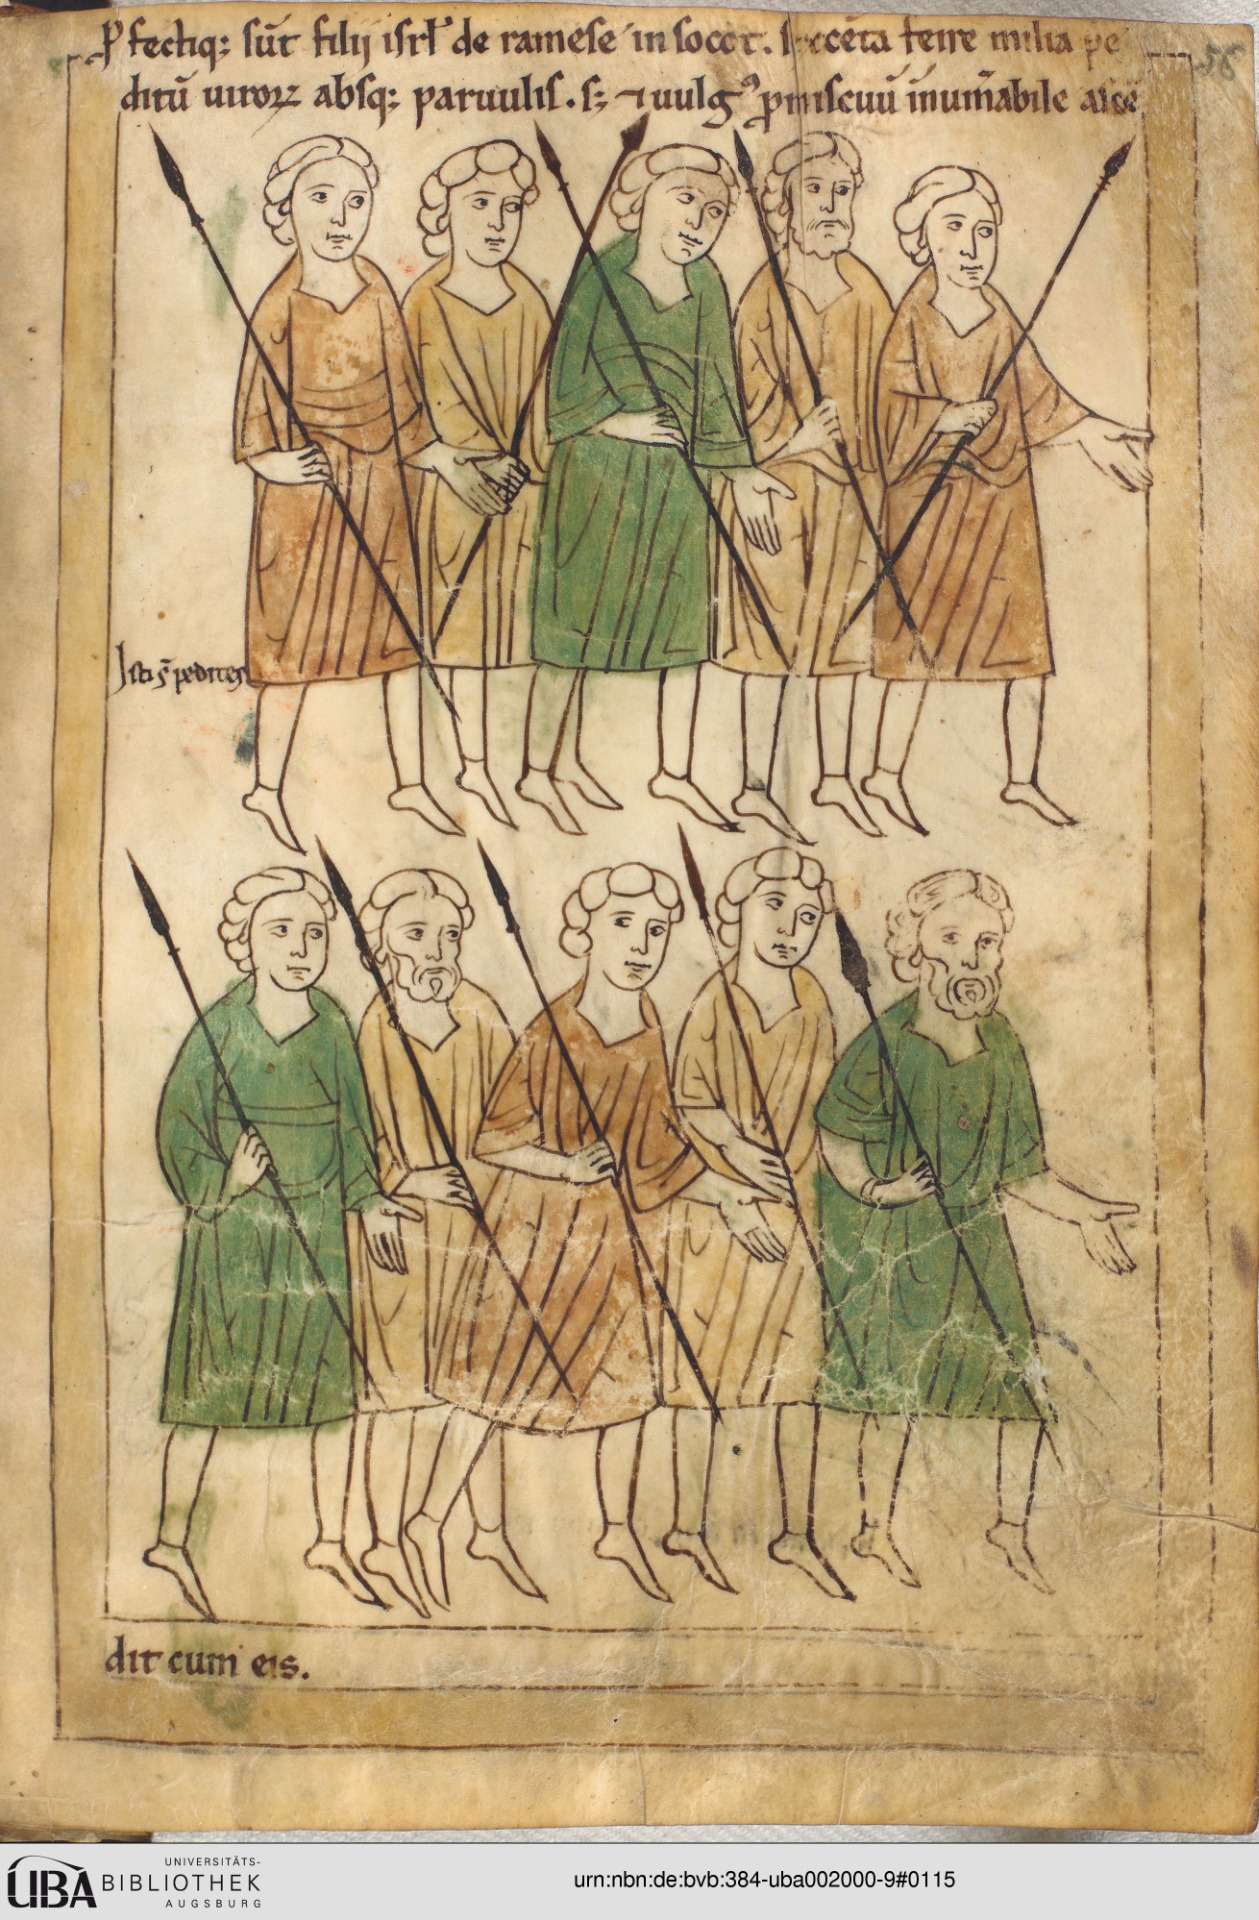 ꝓfectiq; sūt filij isrł de ramese in socot. sexcēta ferre milia pe
ditū uiroꝝ absq; paruulis. s; ⁊ uulgꝰ ꝓmiscuū īnumābile ascē
56
Isti s̄ pedites
dit cum eis.
UBA UNIVERSITÄTS-
BIBLIOTHEK
AUGSBURG
urn:nbn:de:bvb:384-uba002000-9#0115